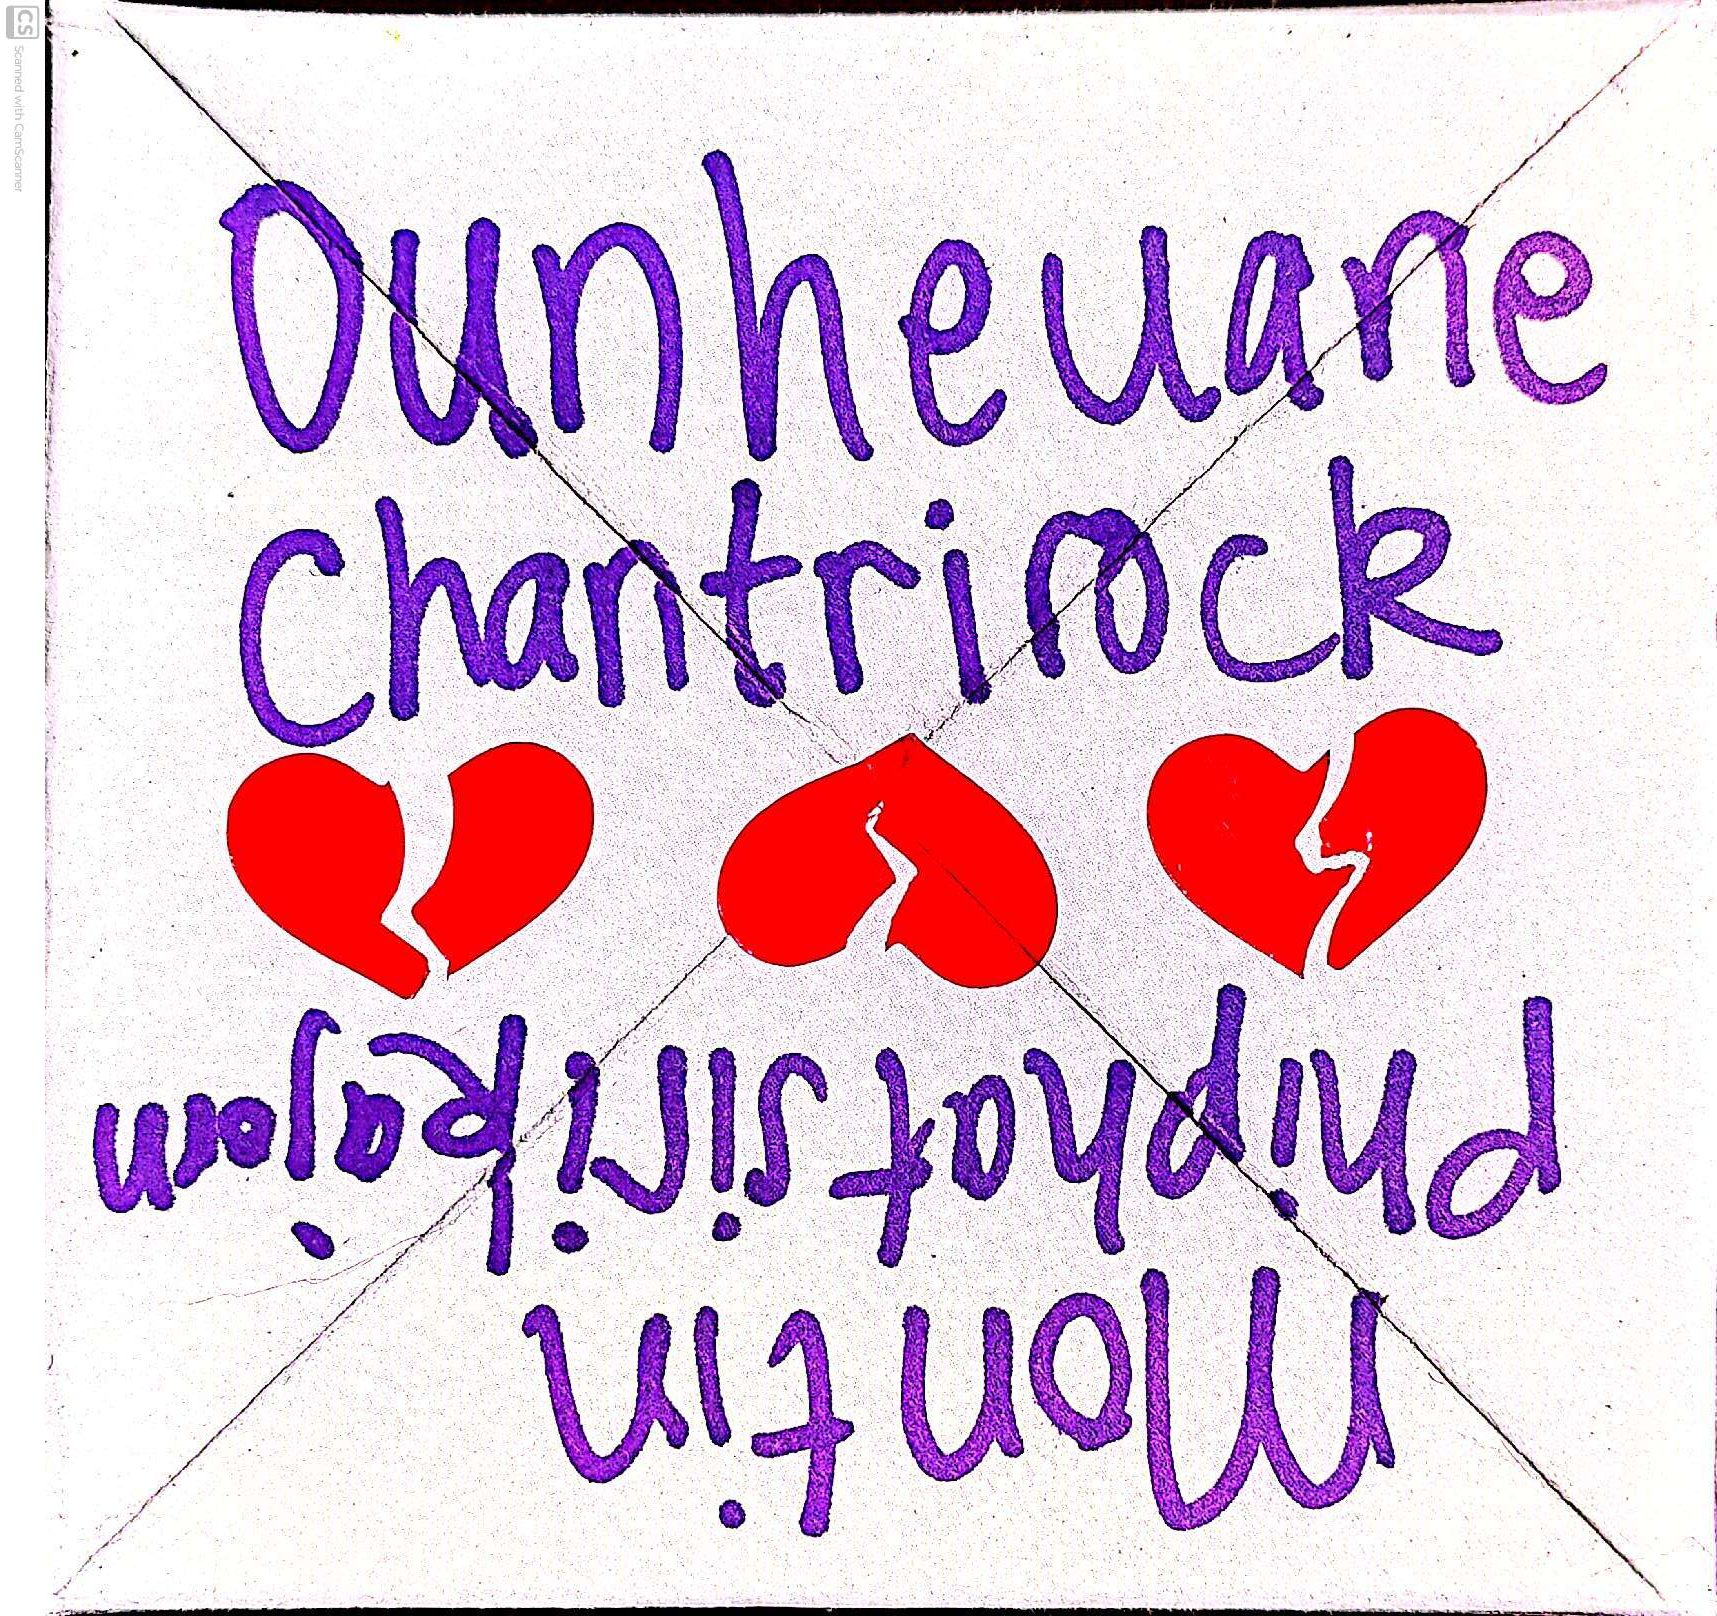 CS Scanned with CamScanner
Ounheuane
Chantrirock
Montin
phiphatsirikajorn